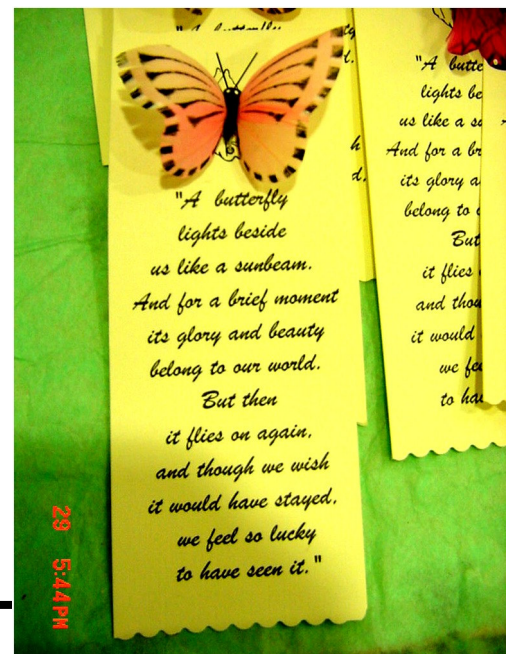 "A butterfly
lights beside
us like a sunbeam.
And for a brief moment
its glory and beauty
belong to our world.
But then
it flies on again,
and though we wish
it would have stayed,
we feel so lucky
to have seen it."
"A butte
lights be
us like a su
And for a br
its glory a
belong to
But
it flies
and thou
it would
we fee
to hav
29 5:44PM